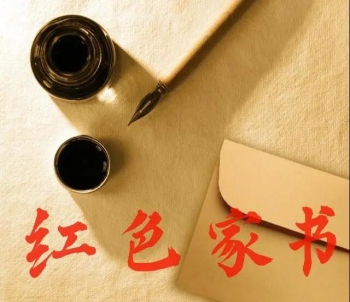 红色家书